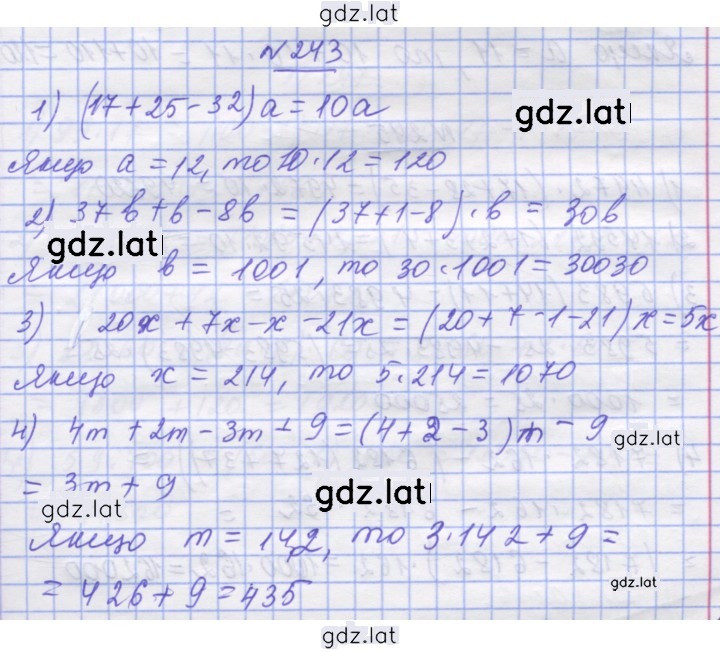 gdz.lat
№ 243
1) (17+25-32)a=10a
gdz.lat
Якщо a=12, то 10·12=120
2) 37b+b-8b=(37+1-8)·b=30b
gdz.lat
Якщо b=1001, то 30·1001=30030
3) 20x+7x-x-21x=(20+7-1-21)x=5x
Якщо x=214, то 5·214=1070
4) 4m+2m-3m+9=(4+2-3)m-9
gdz.lat
=3m+9
gdz.lat
gdz.lat
Якщо m=142, то 3·142+9=
=426+9=435
gdz.lat
gdz.lat